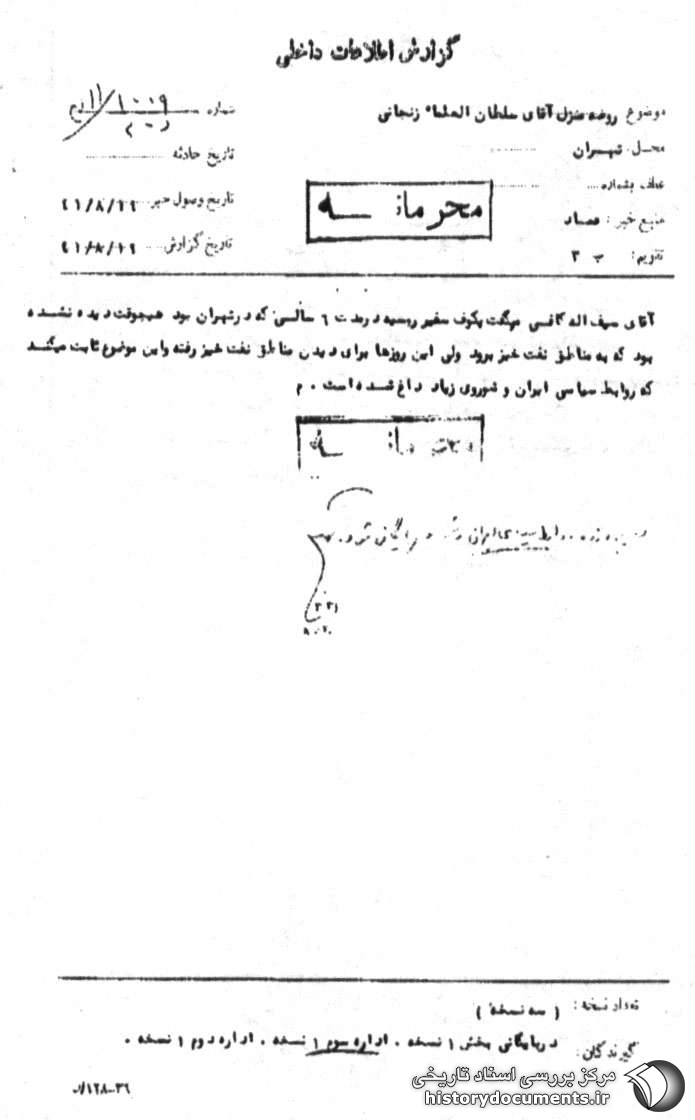 گزارش اطلاعات داخلی
موضوع روضه منزل آقای سلطان العلماء زنجانی
شماره ۱۰۰۹
محل: تهران
تاریخ حادثه
عطف بشماره
محرمانه
تاریخ وصول خبر
منبع خبر:
تاریخ گزارش
تقویم: ب ۳
آقای سیف اله میگفت پگوف سفیر روسیه درمدت ٦ سالی که درتهران بود هیچوقت دیده نشده
بود که به مناطق نفت خیز برود ولی این روزها برای دیدن مناطق نفت خیز رفته واین موضوع ثابت میکند
که روابط سیاسی ایران و شوروی زیاد داغ شده است . م
محرمانه
تعداد نسخه: ( سه نسخه )
گیرندگان: دربایگانی بخش ۱ نسخه . اداره سوم ۱ نسخه . اداره دوم ۱ نسخه .
۱۲۸-۳۶
مرکز بررسی اسناد تاریخی
historydocuments.ir